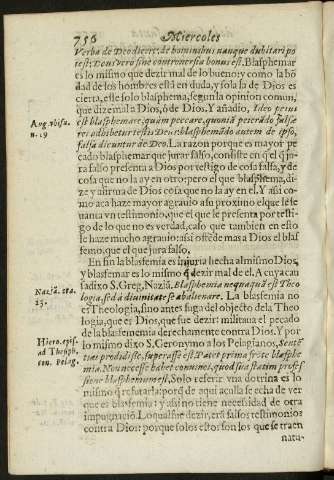 756 Miercoles
Verba de Deo dicere, de hominibus nanque dubitari po
test; Deus vero sine controversia bonus est. Blasphemar
es lo mismo que dezir mal de lo bueno; y como la bõ
dad de los hombres està en duda, y sola la de Dios es
cierta, esse solo blasphema, segun la opinion comun,
que dize mal a Dios, ò de Dios. Y añadio, Ideo peius
est blasphemare, quàm peccare, quoniã peierãdo falsa
res adhibetur testis Deus: blasphemãdo autem de ipso,
falsa dicuntur de Deo. La razon porque es mayor pe
cado blasphemar que jurar falso, consiste en q̃ el q̃ ju
ra falso presenta a Dios por testigo de cosa falsa, y de
cosa que no la ay en otro; pero el que blasphema, di-
ze y afirma de Dios cosa que no la ay en el. Y assi co-
mo aca haze mayor agrauio a su proximo el que le le
uanta vn testimonio, que el que le presenta por testi-
go de lo que no es verdad, caso que tambien en esto
le haze mucho agrauio: assi offẽde mas a Dios el blas
femo, que el que jura falso.
En fin la blasfemia es injuria hecha al mismo Dios,
y blasfemar es lo mismo q̃ dezir mal de el. A cuya cau
sa dixo S. Greg. Naziã. Blasphemia nequaquã est Theo
logia, sed a diuinitate se abalienare. La blasfemia no
es Theologia, sino antes fuga del objecto de la Theo
logia, que es Dios, que es fue dezir: militaua el pecado
de la blasfemia derechamente contra Dios. Y por
lo mismo dixo S. Geronymo a los Pelagianos, Sentẽ
tias prodidisse, superasse est. Patet prima fronte blasphe
mia. Non necesse habet conuinci, quod sua statim profes
sione blasphemum est. Solo referir vna dotrina es lo
mismo q̃ refutarla: porq̃ de aqui aculla se echa de ver
que es blasfemia: y assi no tiene necessidad de otra
impugnació. Lo qual fue dezir, erã falsos testimonios
contra Dios: porque solos estos son los que se traen
natu-
Aug. vbi su.
n. 19
Naziã. ora.
25.
Hiero. epis.
ad Thesiph.
con. Pelag.